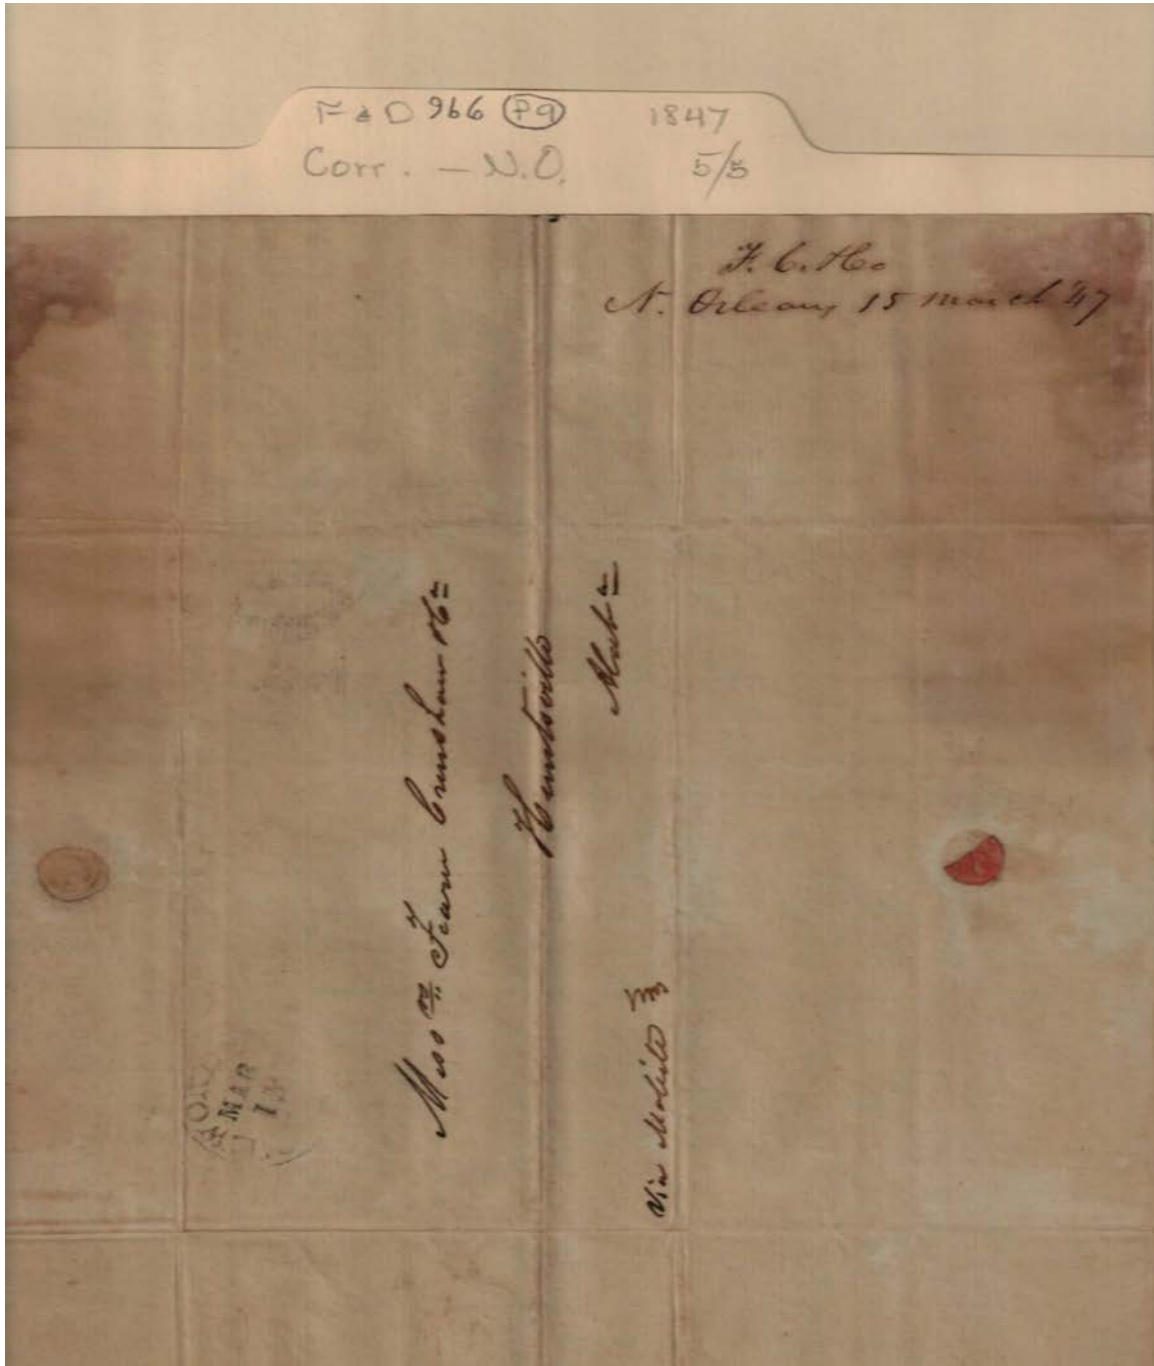 F & D 966 P9 1847
Corr. — N.O. 5/5
F. C. & Co
N. Orleans 15 March 47
Mess rs Fearn Crenshaw & Co
Huntsville
Alab a
Via Mobile
MAR